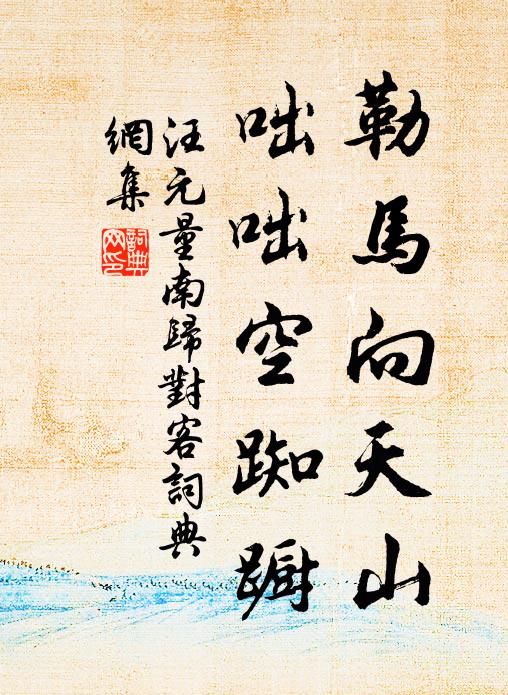 勒馬向天山
咄咄空踟躕
汪元量南歸對客詞典
網集
詞典網印